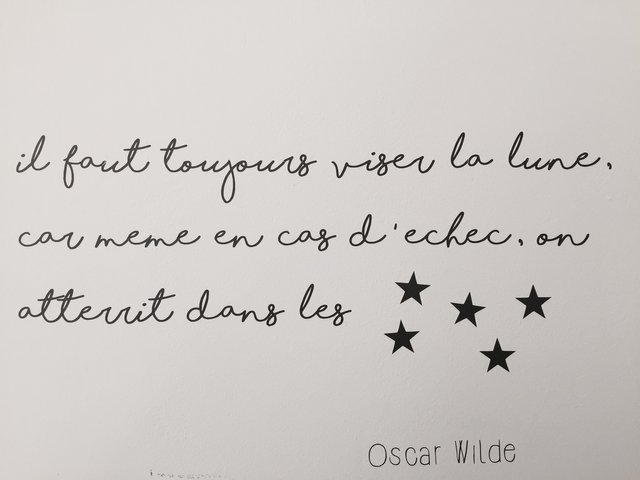 il faut toujours viser la lune,
car meme en cas d'echec, on
atterrit dans les
Oscar Wilde